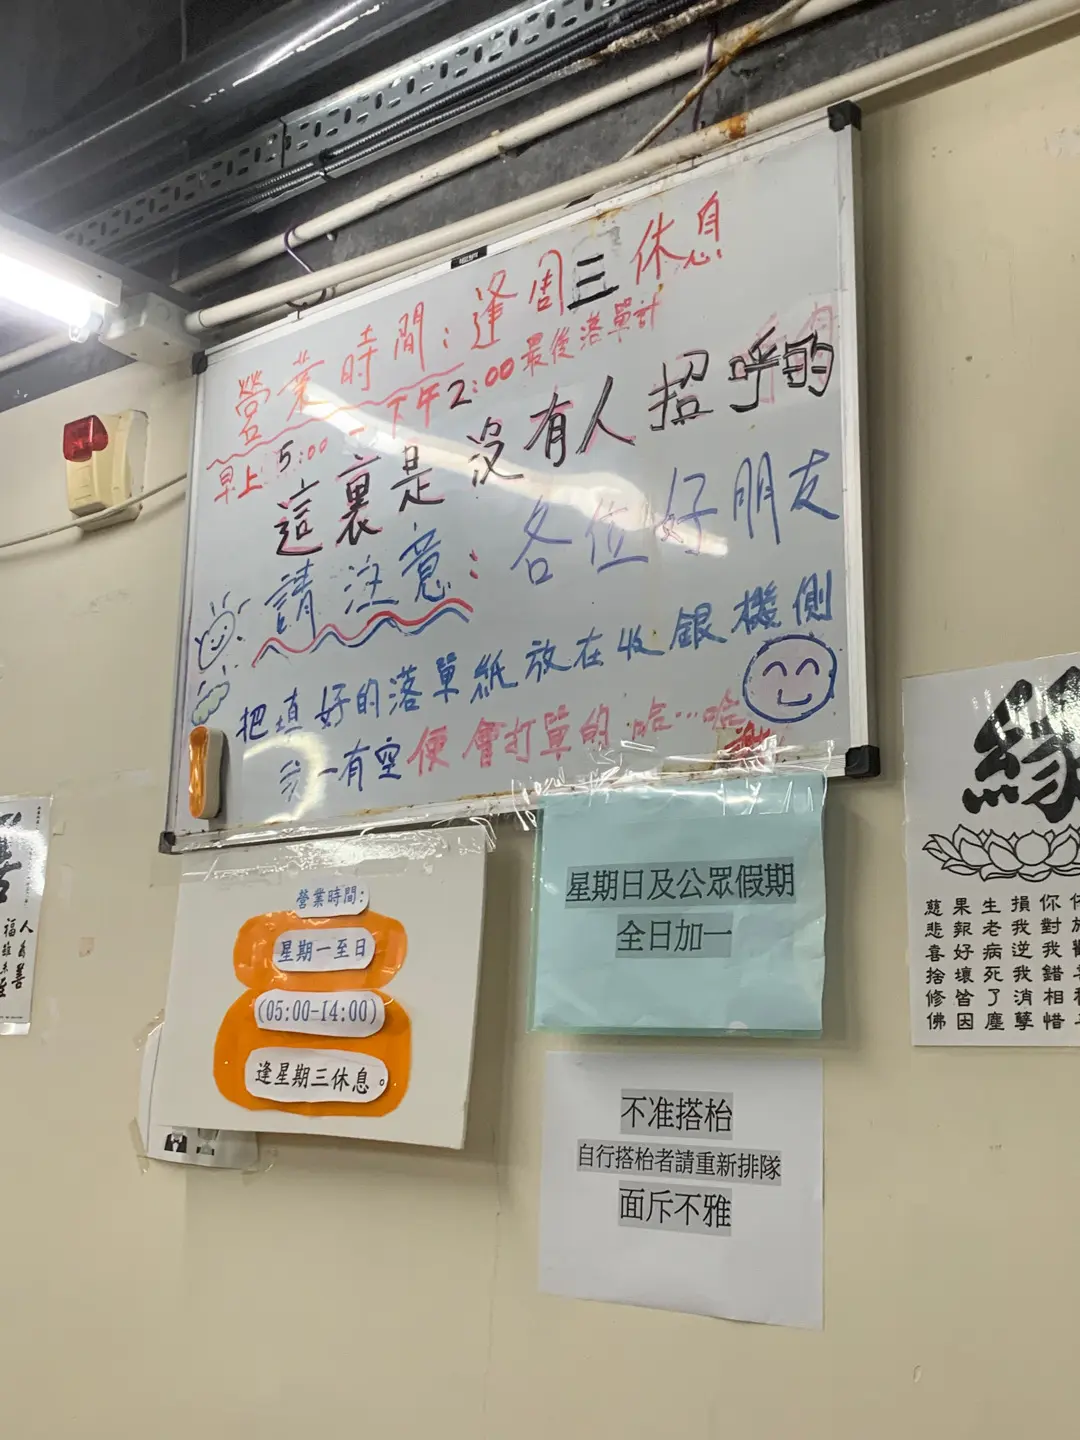 營業時間：逢周三休息
早上5:00－下午2:00最後落單計
這裏是沒有人招呼的
請注意：各位好朋友
把填好的落單紙放在收銀機側
我一有空便會打單的 哈…哈
謝
營業時間:
星期一至日
(05:00-14:00)
逢星期三休息。
星期日及公眾假期
全日加一
不准搭枱
自行搭枱者請重新排隊
面斥不雅
緣
慈悲喜捨修佛
果報好壞皆因
生老病死了塵
損我逆我消孽
你對我錯相惜
人為善
福雖未至